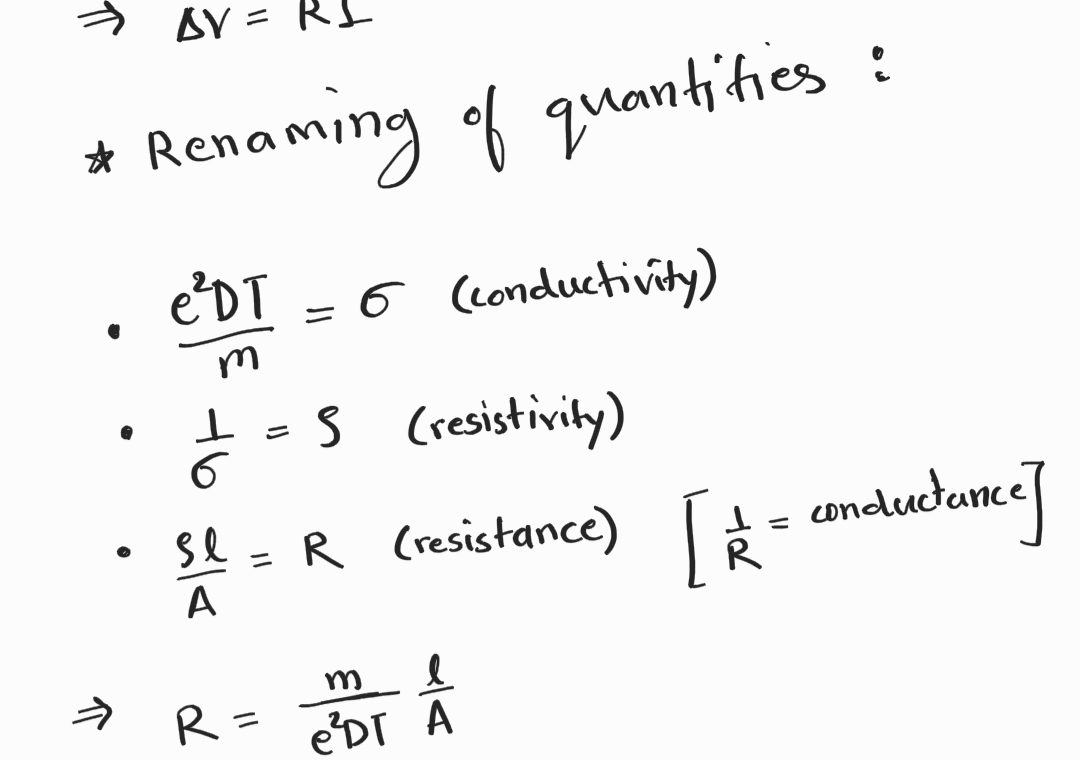 ⇒ ΔV = RI
* Renaming of quantities :
• e²DT/m = σ (conductivity)
• 1/σ = ρ (resistivity)
• ρl/A = R (resistance) [1/R = conductance]
⇒ R = m/e²DT l/A